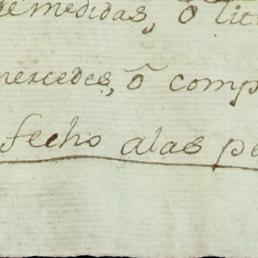 demedidas, ó liti
mercedes, ó comp
fecho alas pa